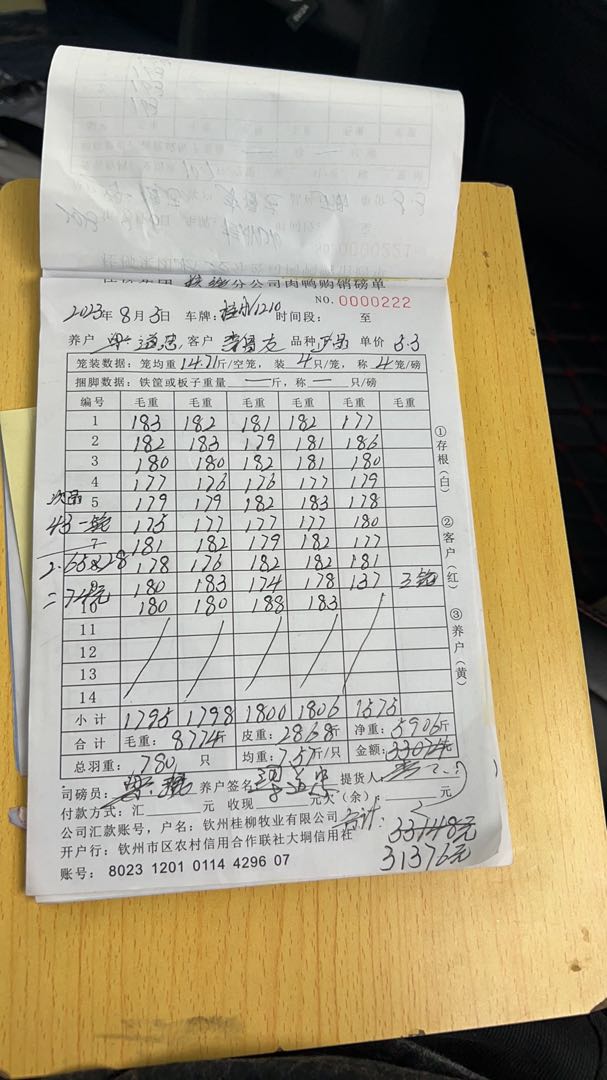 分公司肉鸭购销磅单
NO. 0000222
2023年 8月 3日 车牌: 1210 时间段: 至
养户 客户 品种 单价
笼装数据: 笼均重 14.71斤/空笼, 装 4只/笼, 称 4笼/磅
捆脚数据: 铁筐或板子重量 — 斤, 称 — 只/磅
编号 毛重 毛重 毛重 毛重 毛重 毛重
1 183 182 181 182 177
2 182 183 179 181 186
3 180 180 182 181 180
4 177 176 176 177 179
5 179 179 182 183 178
175 177 177 177 180
7 181 182 179 182 177
178 176 182 182 181
180 183 174 178 137 3笼
10 180 180 188 183
11
12
13
14
小计 1795 1798 1800 1806 1575
合计 毛重: 8774斤 皮重: 2868斤 净重: 5906斤
总羽重: 780 只 均重: 7.57斤/只 金额:
次品
43一笼
2.65×28
=74元
①存根(白)
②客户(红)
③养户(黄)
司磅员: 养户签名 提货人:
付款方式: 汇 元 收现 元欠(余): 元
公司汇款账号, 户名: 钦州桂柳牧业有限公司
合计: 33148元
开户行: 钦州市区农村信用合作联社大垌信用社
31376元
账号: 8023 1201 0114 4296 07